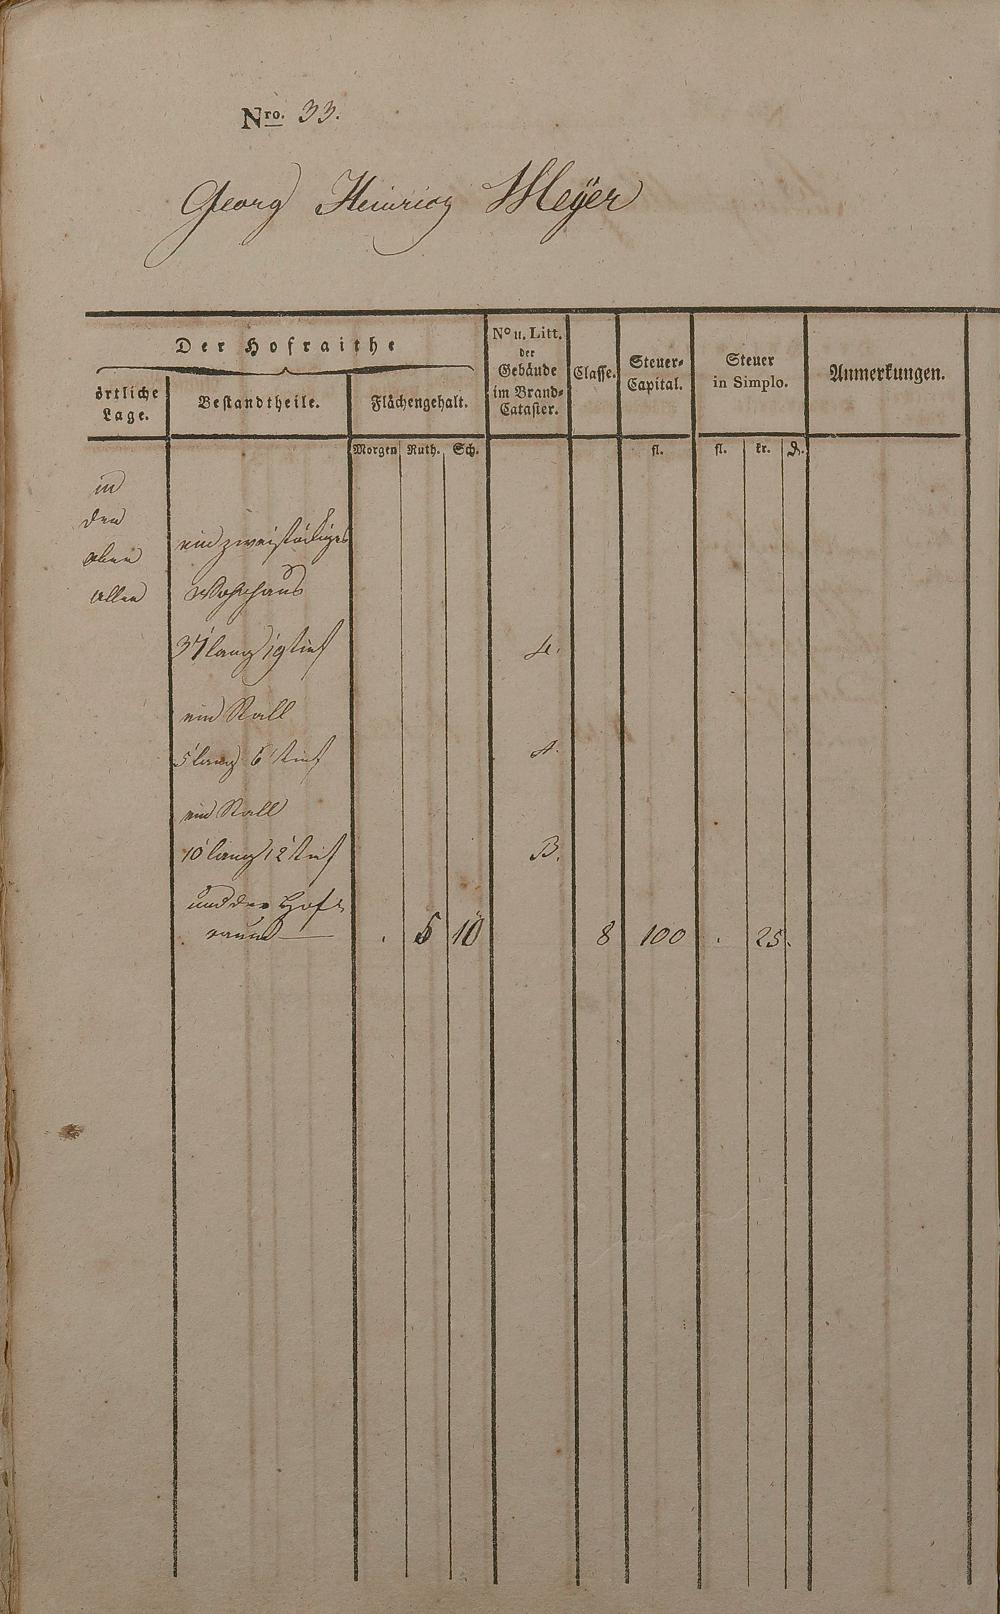 Nro. 33.
Georg Heinrich Meÿer
Der Hofraithe
örtliche Lage.
Bestandtheile.
Flächengehalt.
No u. Litt. der Gebäude im Brand-Cataster.
Classe.
Steuer-Capital.
Steuer in Simplo.
Anmerkungen.
Morgen Ruth. Sch. fl. fl. kr. d.
in
den
ein zweistöckiges
Wohnhaus
37' lang 19' tief
ein Stall
5' lang 6' tief A.
ein Stall
10' lang 12' tief B.
und der Hof-
raum — . 5 10 8 100 . 25.